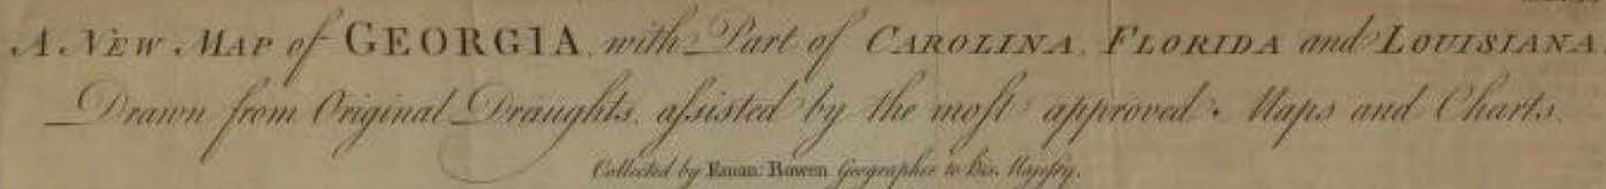 A New Map of GEORGIA, with Part of CAROLINA, FLORIDA and LOUISIANA.
Drawn from Original Draughts, aſsisted by the moſt approved Maps and Charts.
Collected by Eman: Bowen Geographer to His Majeſty.